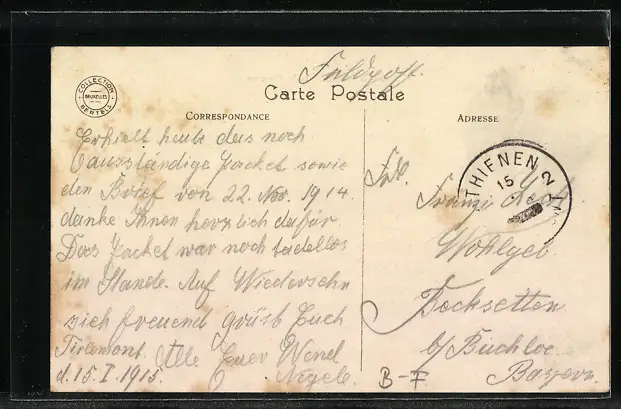 Feldpost.
COLLECTION
BRUXELLES
BERTELS
Carte Postale
CORRESPONDANCE
ADRESSE
Erhielt heute das noch
ausständige Packet sowie
den Brief von 22. Nov. 1914
danke Ihnen herzlich dafür
Das Packet war noch tadellos
im Stande. Auf Wiedersehn
sich freuend grüst Euch
Tirlemont. Alle Euer
d. 15. I. 1915. Negele.
THIENEN 2
15
Frl.
Franzi
Wohlgeb.
Dochsetten
b/ Buchloe
Bayern.
B-F